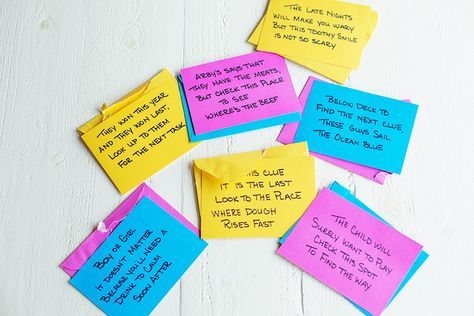 THE LATE NIGHTS
WILL MAKE YOU WARY
BUT THIS TOOTHY SMILE
IS NOT SO SCARY
ARBY'S SAYS THAT
THEY HAVE THE MEATS,
BUT CHECK THIS PLACE
TO SEE
WHERE'S THE BEEF
BELOW DECK TO
FIND THE NEXT CLUE,
THESE GUYS SAIL
THE OCEAN BLUE
THEY WON THIS YEAR
AND THEY WON LAST,
LOOK UP TO THEM
FOR THE NEXT TASK
THIS CLUE
IT IS THE LAST
LOOK TO THE PLACE
WHERE DOUGH
RISES FAST
BOY OR GIRL
IT DOESN'T MATTER
BECAUSE YOU'LL NEED A
DRINK TO CALM
SOON AFTER
THE CHILD WILL
SURELY WANT TO PLAY
CHECK THIS SPOT
TO FIND THE WAY